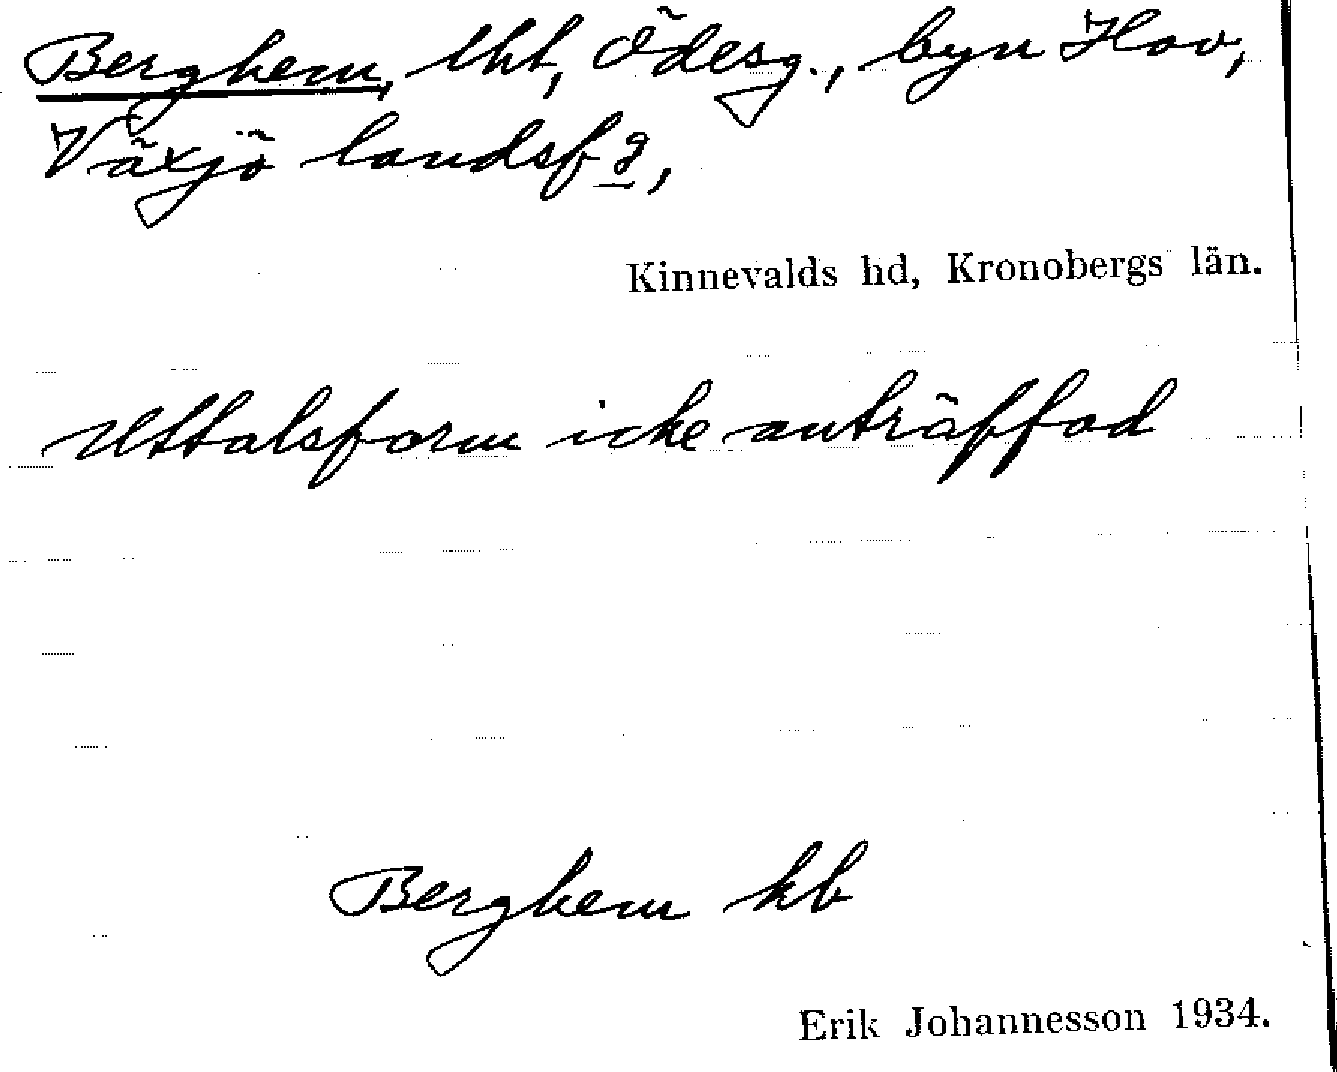 Berghem, lht, Ödesg., byn Hov,
Växjö landsf g,
Kinnevalds hd, Kronobergs län.
Uttalsform icke anträffad
Berghem kb
Erik Johannesson 1934.